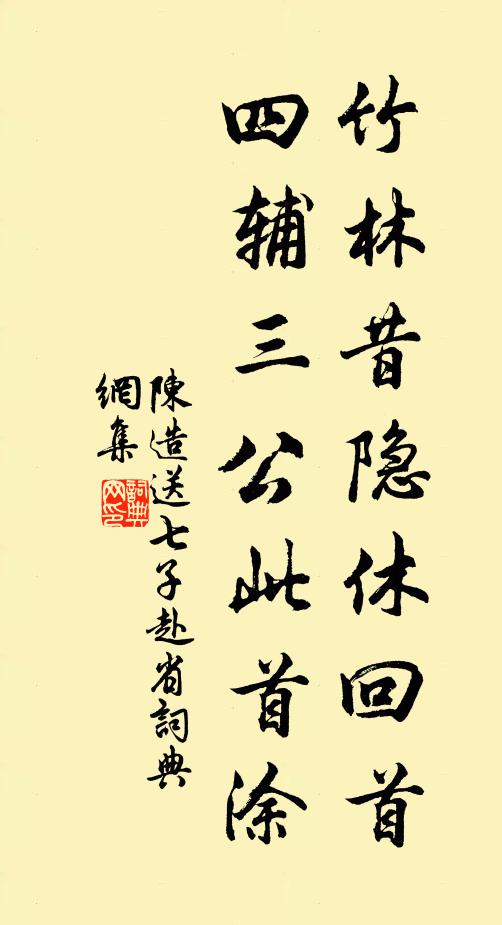 竹林昔隐休回首
四辅三公此首涂
陳造送七子赴省詞典
網集
詞典
网印